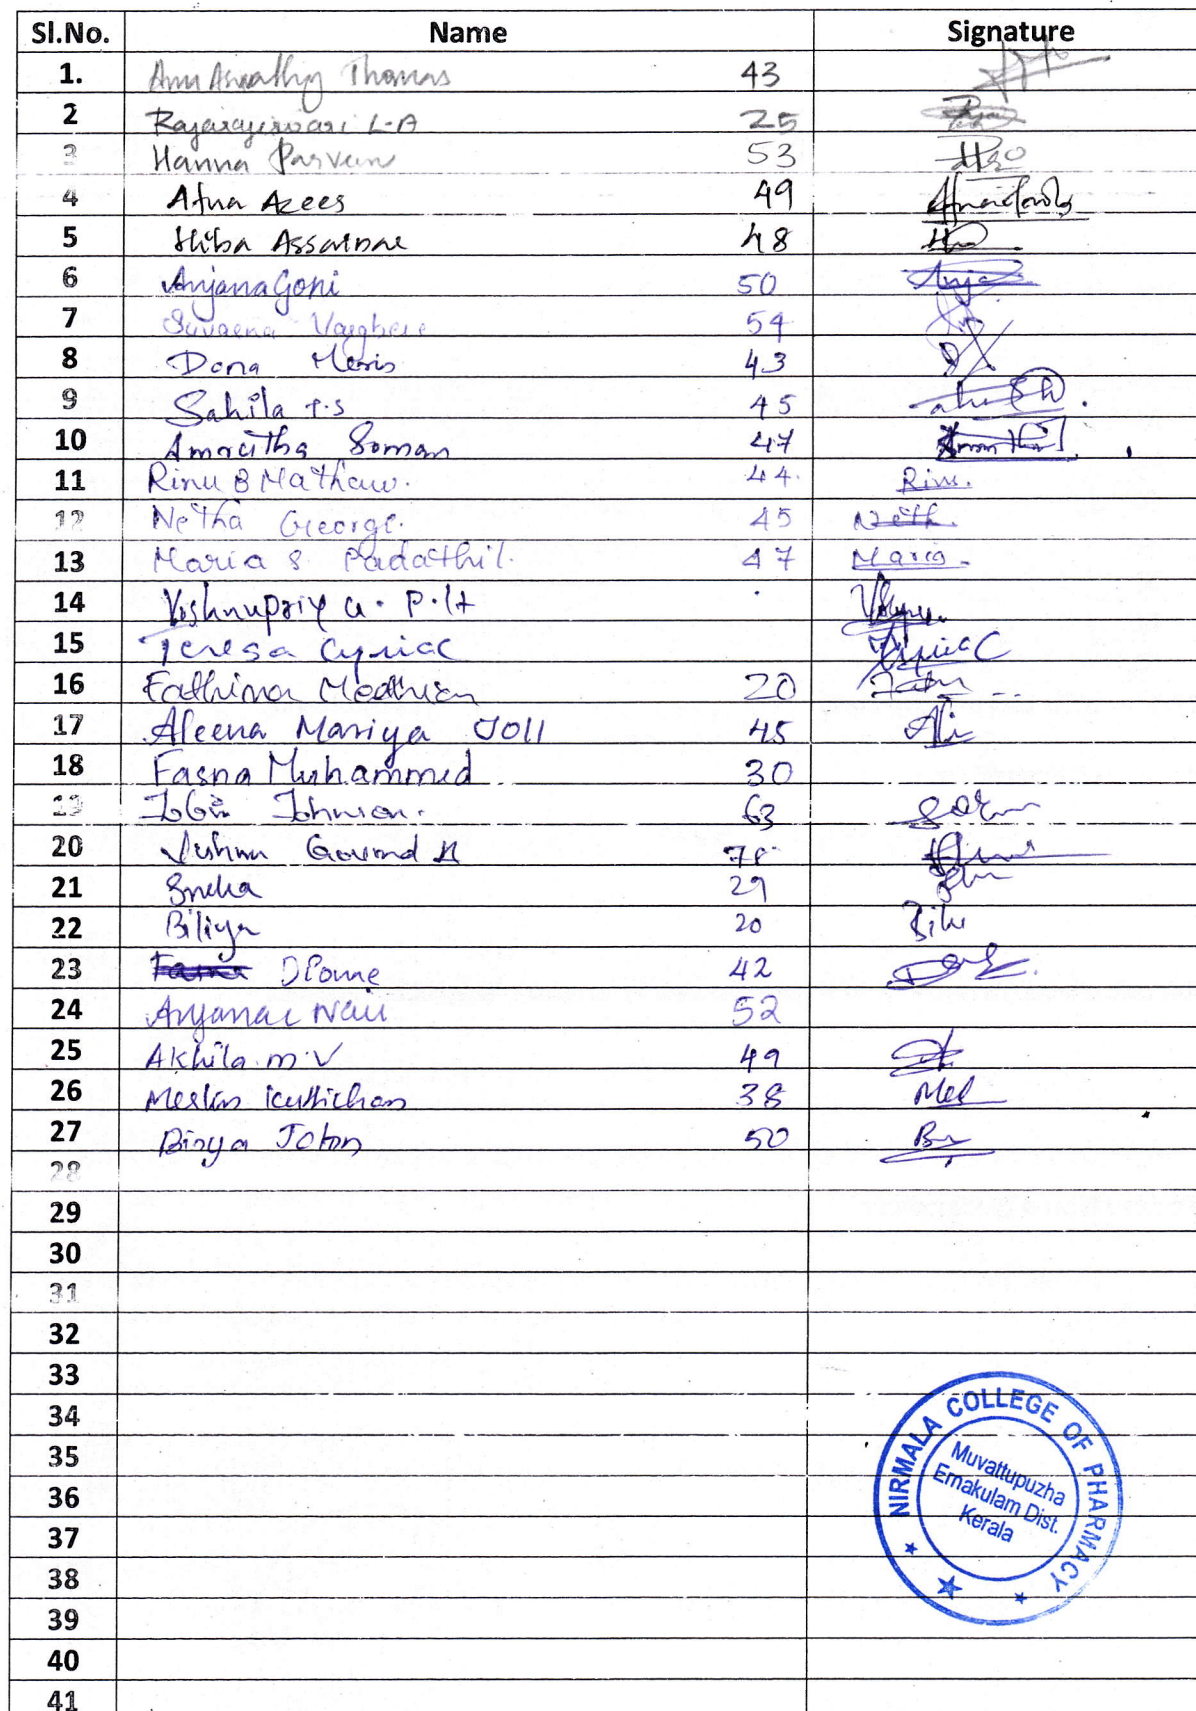 Sl.No. Name Signature
1. Anu Aswathy Thomas 43
2 Rajarajeswari L-A 25
3 Hanna Parveen 53
4 Afna Azees 49
5 Hiba Assainar 48
6 Anjana Gopi 50 Anja
7 Suvarna Varghese 54
8 Dona Meris 43
9 Sahila T.S 45
10 Amrutha Soman 47
11 Rinu B Mathew. 44. Rinu.
12 Netha George. 45 Neth.
13 Maria S. Padathil. 47 Maria.
14 Vishnupriya. P.H
15 Teresa Cyriac
16 Fathima 20
17 Aleena Mariya Joll 45 Ali
18 Fasna Muhammed 30
19 Johnson. 63
20 Vishnu Govind 78
21 Sneha 29
22 Biliya 20 Bili
23 42
24 Anjana Nair 52
25 Akhila.m.V 49
26 Merlin Kuttichan 38 Mel
27 Binya John 50
28
29
30
31
32
33
34
35
36
37
38
39
40
41
NIRMALA COLLEGE OF PHARMACY
Muvattupuzha
Ernakulam Dist.
Kerala